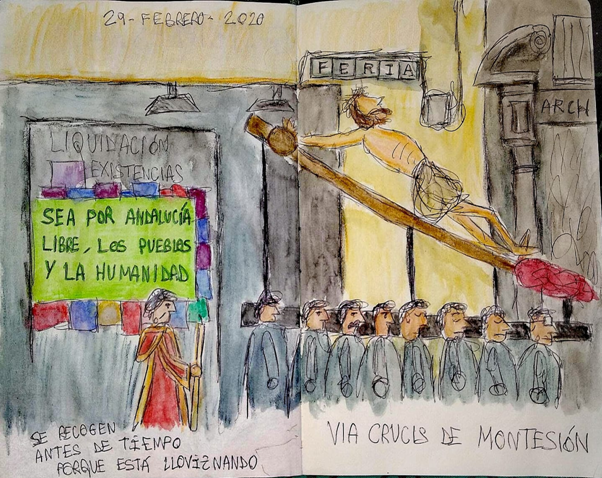 29-FEBRERO-2020
FERIA
ARCH
LIQUIDACIÓN
EXISTENCIAS
SEA POR ANDALUCÍA
LIBRE, LOS PUEBLOS
Y LA HUMANIDAD
SE RECOGEN
ANTES DE TIEMPO
PORQUE ESTÁ LLOVIZNANDO
VIA CRUCIS DE MONTESIÓN